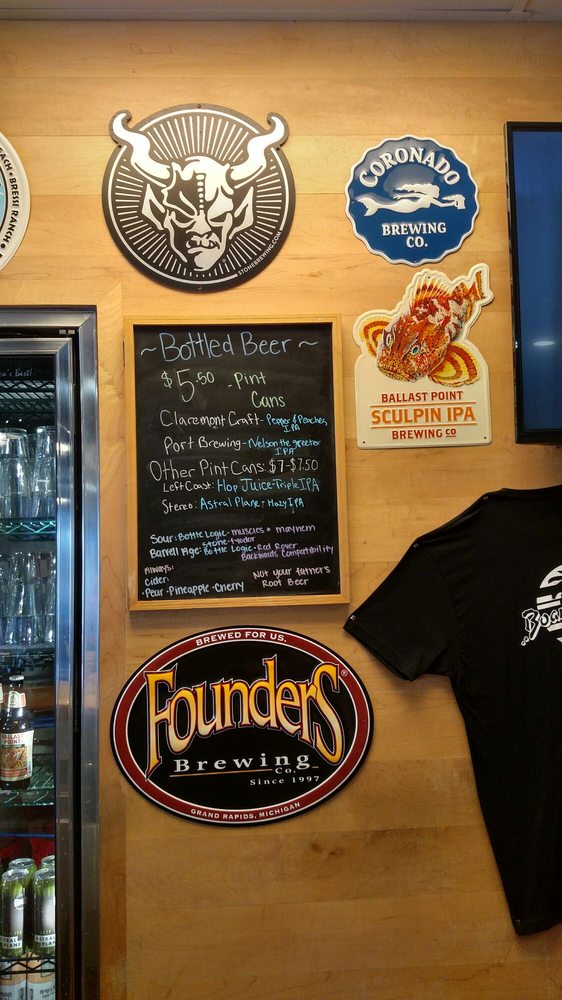 EACH • BRESSI RANCH •
STONEBREWING.COM
CORONADO
BREWING
CO.
BALLAST POINT
SCULPIN IPA
BREWING CO
~ Bottled Beer ~
$5.50 - Pint
Cans
Claremont Craft - Pepper & Peaches
IPA
Port Brewing - Nelson the greeter
IPA
Other Pint Cans: $7-$7.50
Left Coast: Hop Juice - Triple IPA
Stereo: Astral Plane - Hazy IPA
Sour: Bottle Logic - muscles & mayhem
Stone - Fyodor
Barrel Age: Bottle Logic - Red Rover
Backwards Compatibility
Always:
Cider:
• Pear • Pineapple • Cherry
Not Your Father's
Root Beer
BREWED FOR US.
Founders®
Brewing
Co.
Since 1997
GRAND RAPIDS, MICHIGAN
BALLAST
POINT